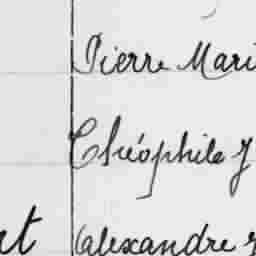 Pierre Mari
Théophile J
at alexandre